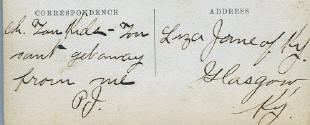 CORRESPONDENCE
ADDRESS
Oh. You Kid - You
can't get away
from me
P.J.
Liza Jane of Ky.
Glasgow,
Ky.